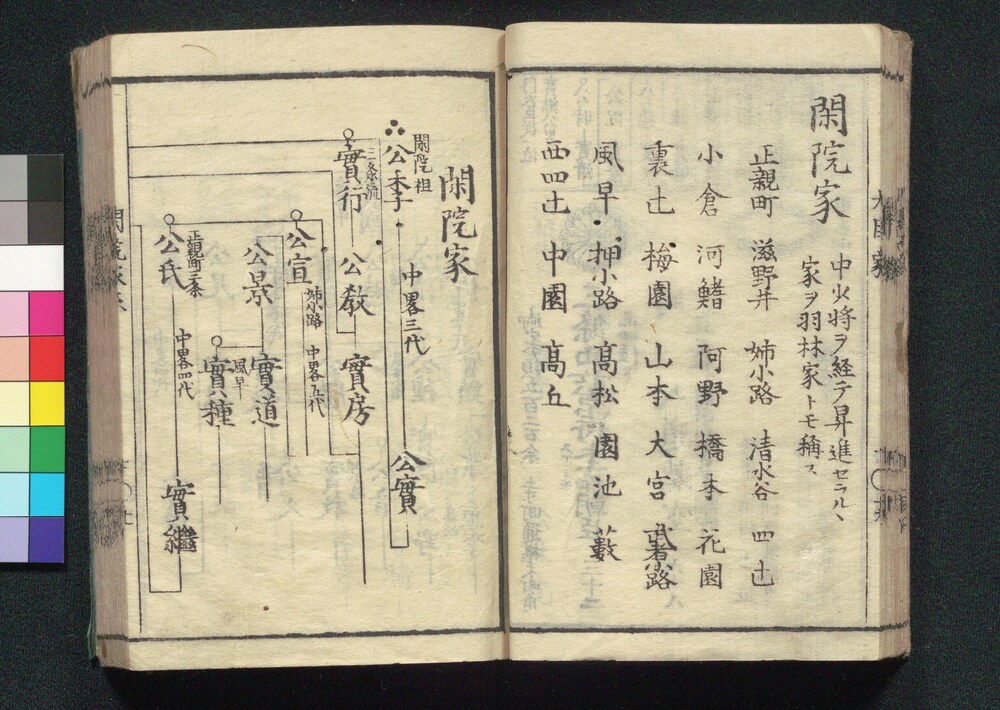 閑院家
中少将ヲ経テ昇進セラルヽ
家ヲ羽林家トモ稱ス
正親町 滋野井 姉小路 清水谷 四辻
小倉 河鰭 阿野 橋本 花園
裏辻 梅園 山本 大宮 武者小路
風早 押小路 高松 園池 藪
西四辻 中園 高丘
閑院家
閑院祖
公季 中畧三代 公實
三条流
實行 公教 實房
公宣 姉小路 中畧五代
公景 實道
風早
實種
正親町三条
公氏 中畧四代 實繼